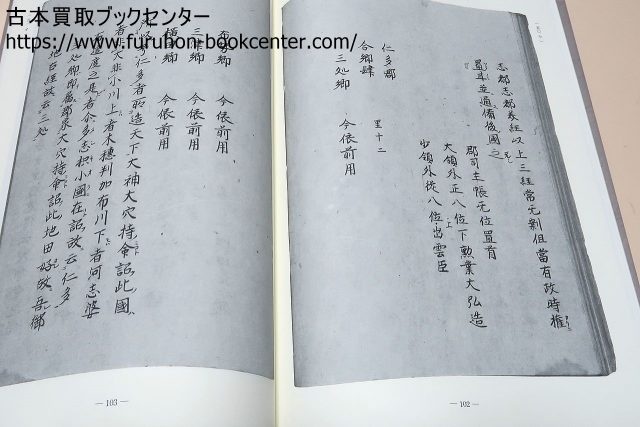 古本買取ブックセンター
https://www.furuhon-bookcenter.com/
志都志都美経以上三経常无剗但當有政時権
置耳並通備後國之
郡司主張无位置首
大領外正八位下勲業大弘造
少領外従八位上出雲臣
仁多郡
合郷肆 里十二
三処郷 今依前用
布勢郷 今依前用
三津郷 今依前用
横田郷 今依前用
所以号仁多者所造天下大神大穴持命詔此國
者非大非小川上者木穂判加布川下者河志婆
布這度之是者余多志枳小國在詔故云仁多
三処郷即属郡家大穴持命詔此地田好故吾御
地古経故云三処
— 103 —
— 102 —